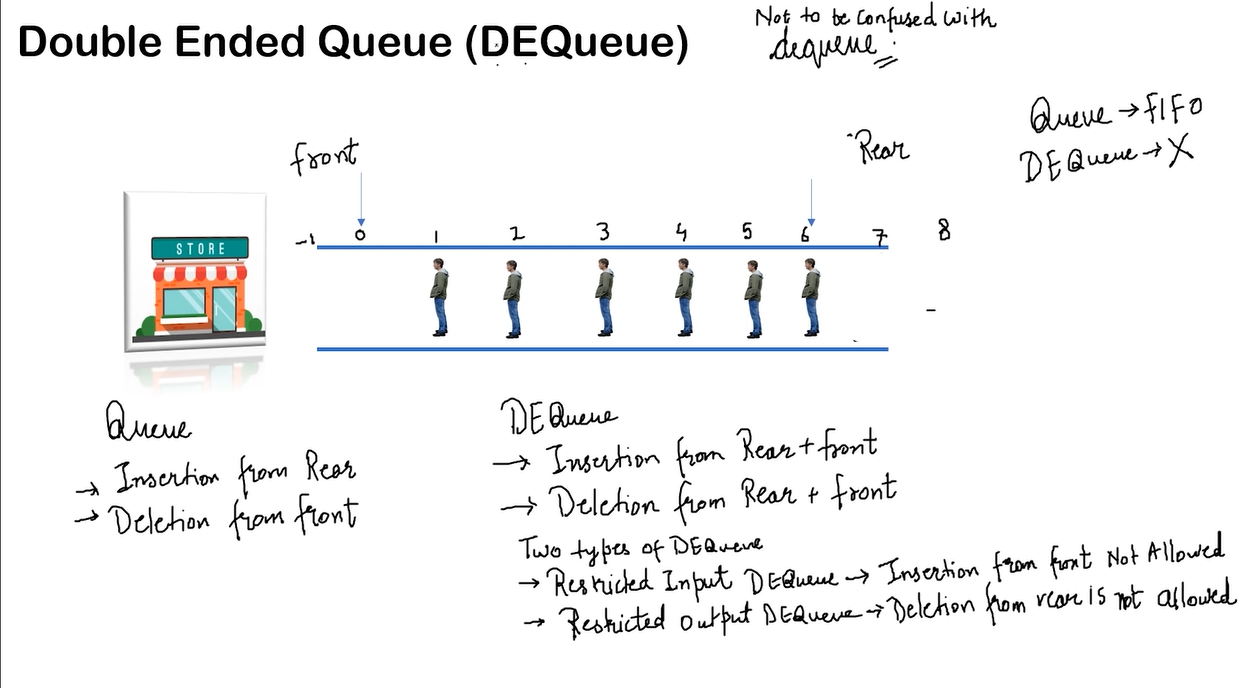 Double Ended Queue (DEQueue)
Not to be confused with
dequeue.
Queue → FIFO
DEQueue → X
front
Rear
-1 0 1 2 3 4 5 6 7 8
STORE
Queue
→ Insertion from Rear
→ Deletion from front
DEQueue
→ Insertion from Rear + front
→ Deletion from Rear + front
Two types of DEQueue
→ Restricted Input DEQueue → Insertion from front Not Allowed
→ Restricted Output DEQueue → Deletion from rear is not allowed